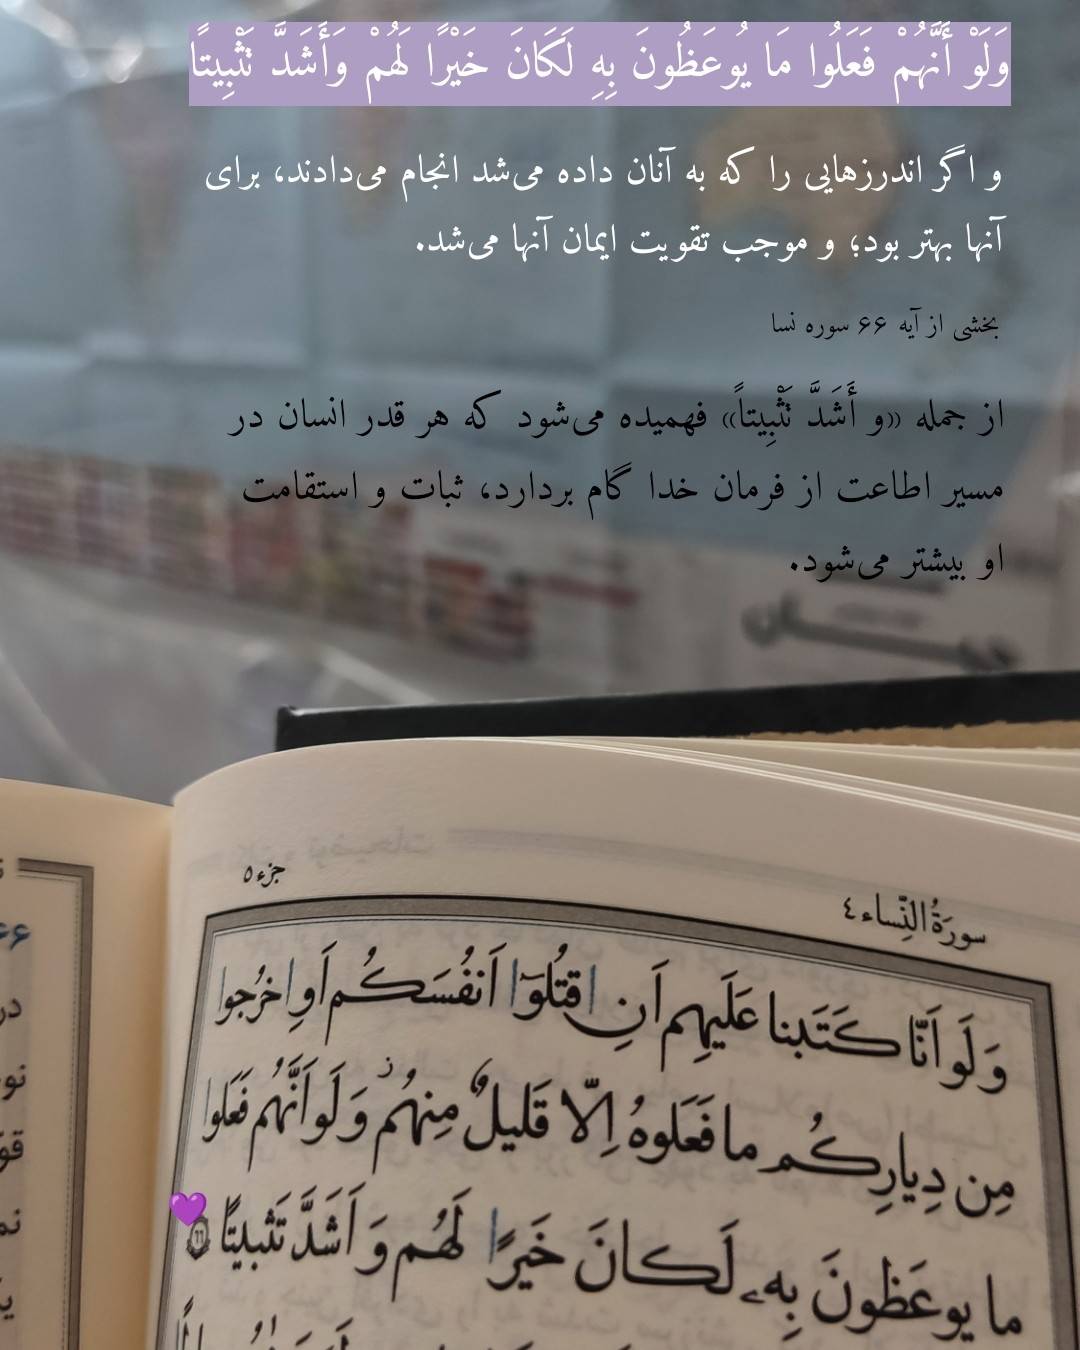 وَلَوْ أَنَّهُمْ فَعَلُوا مَا يُوعَظُونَ بِهِ لَكَانَ خَيْرًا لَهُمْ وَأَشَدَّ تَثْبِيتًا
و اگر اندرزهایی را که به آنان داده می‌شد انجام می‌دادند، برای
آنها بهتر بود؛ و موجب تقویت ایمان آنها می‌شد.
بخشی از آیه ۶۶ سوره نسا
از جمله «و أَشَدَّ تَثْبِيتاً» فهمیده می‌شود که هر قدر انسان در
مسیر اطاعت از فرمان خدا گام بردارد، ثبات و استقامت
او بیشتر می‌شود.
سورَةُ النِّساء ٤
جزء ٥
وَلَو اَنّا كَتَبنا عَلَيهِم اَنِ اقتُلوٓا اَنفُسَكُم اَوِ اخرُجوا
مِن دِيارِكُم ما فَعَلوهُ اِلّا قَليلٌ مِنهُم وَلَو اَنَّهُم فَعَلوا
ما يوعَظونَ بِه لَكانَ خَيرًا لَهُم وَ اَشَدَّ تَثبيتًا ٦٦